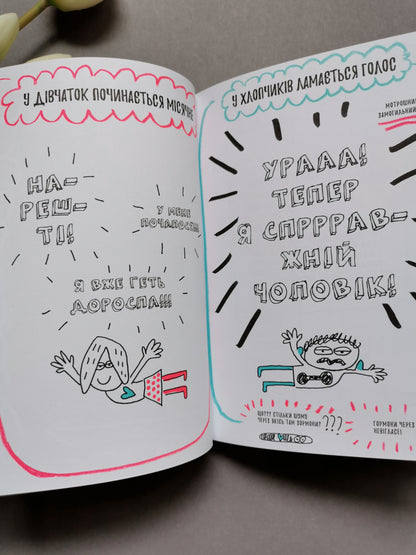 У ДІВЧАТОК ПОЧИНАЄТЬСЯ МІСЯЧНІ
НА-
РЕШ-
ТІ!
У МЕНЕ
ПОЧАЛОСЯ!!!
Я ВЖЕ ГЕТЬ
ДОРОСЛА!!!
У ХЛОПЧИКІВ ЛАМАЄТЬСЯ ГОЛОС
УРААА!
ТЕПЕР
Я СПРРРАВ-
ЖНІЙ
ЧОЛОВІК!
ЩО??? СТІЛЬКИ ШУМУ
ЧЕРЕЗ ЯКІСЬ ТАМ ГОРМОНИ?
???
ГОРМОНИ ЧЕРЕЗ
НЕВІГЛАСЕ!